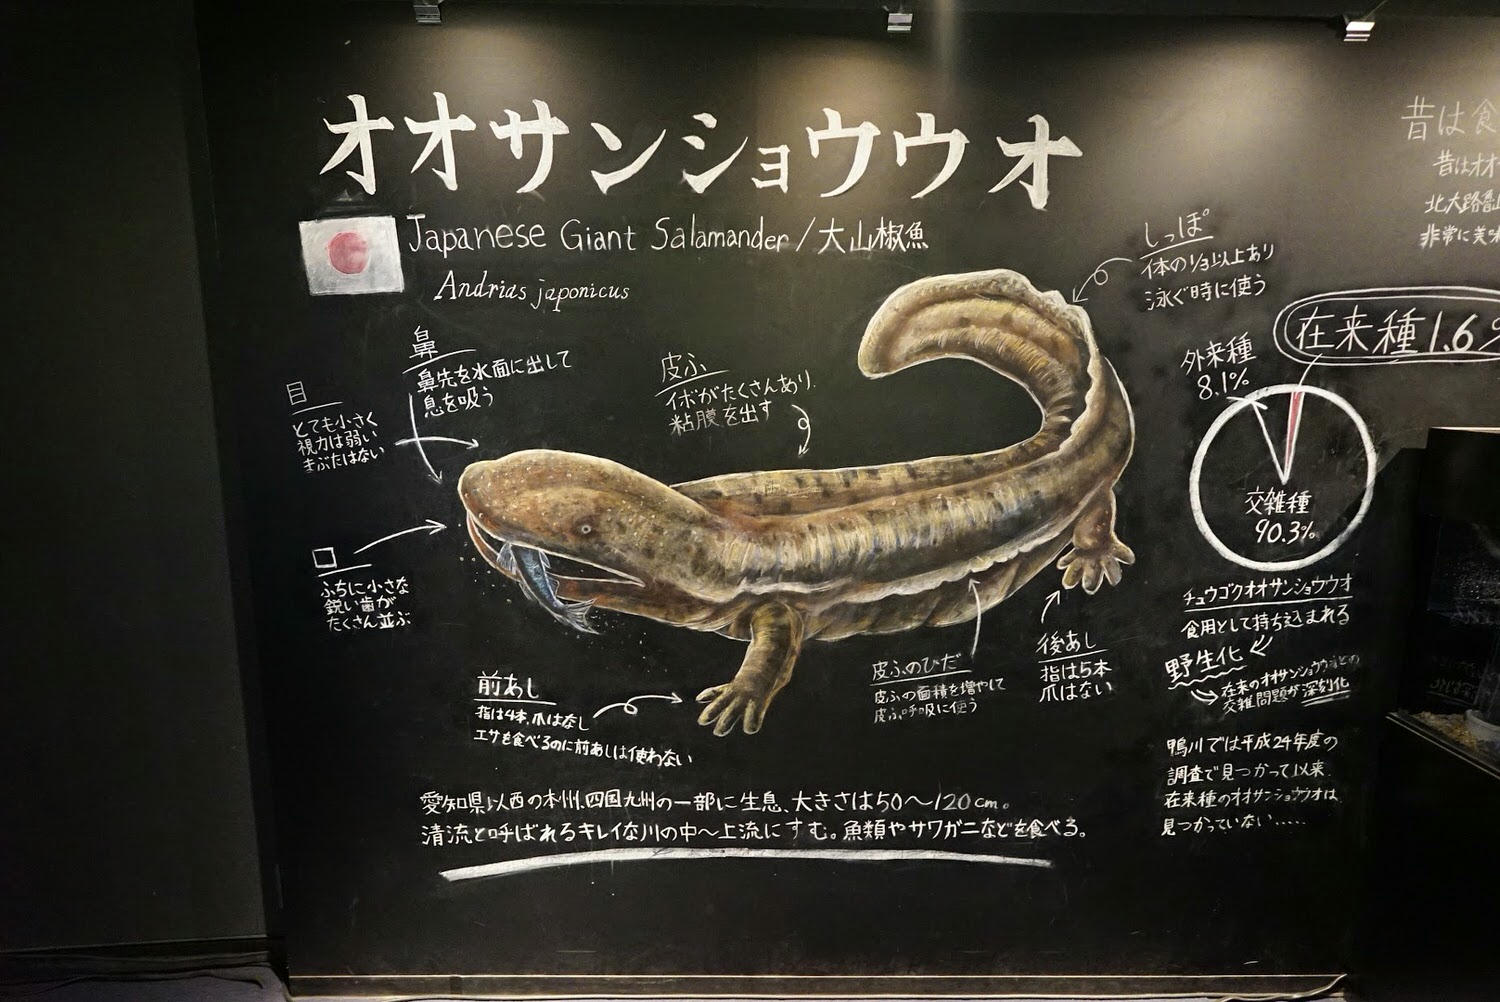 オオサンショウウオ
Japanese Giant Salamander/大山椒魚
Andrias japonicus
鼻
鼻先を水面に出して
息を吸う
目
とても小さく
視力は弱い
まぶたはない
口
ふちに小さな
鋭い歯が
たくさん並ぶ
皮ふ
イボがたくさんあり、
粘膜を出す
しっぽ
体の1/3以上あり
泳ぐ時に使う
前あし
指は4本、爪はなし
エサを食べるのに前あしは使わない
皮ふのひだ
皮ふの面積を増やして
皮ふ呼吸に使う
後あし
指は5本
爪はない
愛知県以西の本州、四国九州の一部に生息、大きさは50〜120cm。
清流と呼ばれるキレイな川の中〜上流にすむ。魚類やサワガニなどを食べる。
昔は食
昔はオオ
北大路魯山
非常に美味
在来種1.6%
外来種
8.1%
交雑種
90.3%
チュウゴクオオサンショウウオ
食用として持ち込まれる
野生化
在来のオオサンショウウオとの
交雑問題が深刻化
鴨川では平成24年度の
調査で見つかって以来、
在来種のオオサンショウウオは、
見つかっていない.....